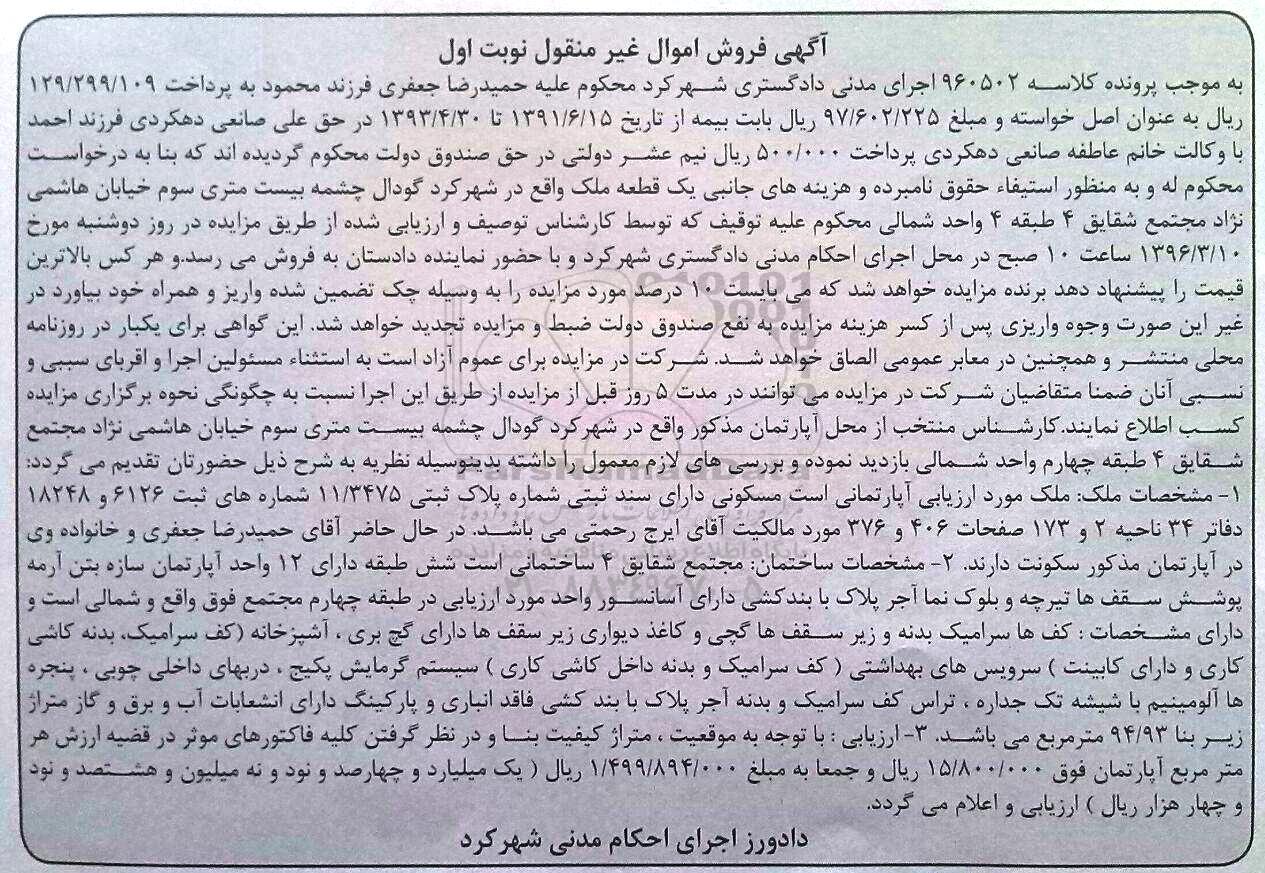 آگهی فروش اموال غیر منقول نوبت اول
به موجب پرونده کلاسه ۹۶۰۵۰۲ اجرای مدنی دادگستری شهرکرد محکوم علیه حمیدرضا جعفری فرزند محمود به پرداخت ۱۲۹/۲۹۹/۱۰۹
ریال به عنوان اصل خواسته و مبلغ ۹۷/۶۰۲/۲۲۵ ریال بابت بیمه از تاریخ ۱۳۹۱/۶/۱۵ تا ۱۳۹۳/۴/۳۰ در حق علی صانعی دهکردی فرزند احمد
با وکالت خانم عاطفه صانعی دهکردی پرداخت ۵۰۰/۰۰۰ ریال نیم عشر دولتی در حق صندوق دولت محکوم گردیده اند که بنا به درخواست
محکوم له و به منظور استیفاء حقوق نامبرده و هزینه های جانبی یک قطعه ملک واقع در شهرکرد گودال چشمه بیست متری سوم خیابان هاشمی
نژاد مجتمع شقایق ۴ طبقه ۴ واحد شمالی محکوم علیه توقیف که توسط کارشناس توصیف و ارزیابی شده از طریق مزایده در روز دوشنبه مورخ
۱۳۹۶/۳/۱۰ ساعت ۱۰ صبح در محل اجرای احکام مدنی دادگستری شهرکرد و با حضور نماینده دادستان به فروش می رسد.و هر کس بالاترین
قیمت را پیشنهاد دهد برنده مزایده خواهد شد که می بایست ۱۰ درصد مورد مزایده را به وسیله چک تضمین شده واریز و همراه خود بیاورد در
غیر این صورت وجوه واریزی پس از کسر هزینه مزایده به نفع صندوق دولت ضبط و مزایده تجدید خواهد شد. این گواهی برای یکبار در روزنامه
محلی منتشر و همچنین در معابر عمومی الصاق خواهد شد. شرکت در مزایده برای عموم آزاد است به استثناء مسئولین اجرا و اقربای سببی و
نسبی آنان ضمنا متقاضیان شرکت در مزایده می توانند در مدت ۵ روز قبل از مزایده از طریق این اجرا نسبت به چگونگی نحوه برگزاری مزایده
کسب اطلاع نمایند.کارشناس منتخب از محل آپارتمان مذکور واقع در شهرکرد گودال چشمه بیست متری سوم خیابان هاشمی نژاد مجتمع
شقایق ۴ طبقه چهارم واحد شمالی بازدید نموده و بررسی های لازم معمول را داشته بدینوسیله نظریه به شرح ذیل حضورتان تقدیم می گردد:
۱- مشخصات ملک: ملک مورد ارزیابی آپارتمانی است مسکونی دارای سند ثبتی شماره پلاک ثبتی ۱۱/۳۴۷۵ شماره های ثبت ۶۱۲۶ و ۱۸۲۴۸
دفاتر ۳۴ ناحیه ۲ و ۱۷۳ صفحات ۴۰۶ و ۳۷۶ مورد مالکیت آقای ایرج رحمتی می باشد. در حال حاضر آقای حمیدرضا جعفری و خانواده وی
در آپارتمان مذکور سکونت دارند. ۲- مشخصات ساختمان: مجتمع شقایق ۴ ساختمانی است شش طبقه دارای ۱۲ واحد آپارتمان سازه بتن آرمه
پوشش سقف ها تیرچه و بلوک نما آجر پلاک با بندکشی دارای آسانسور واحد مورد ارزیابی در طبقه چهارم مجتمع فوق واقع و شمالی است و
دارای مشخصات : کف ها سرامیک بدنه و زیر سقف ها گچی و کاغذ دیواری زیر سقف ها دارای گچ بری ، آشپزخانه (کف سرامیک، بدنه کاشی
کاری و دارای کابینت ) سرویس های بهداشتی ( کف سرامیک و بدنه داخل کاشی کاری ) سیستم گرمایش پکیج ، دربهای داخلی چوبی ، پنجره
ها آلومینیم با شیشه تک جداره ، تراس کف سرامیک و بدنه آجر پلاک با بند کشی فاقد انباری و پارکینگ دارای انشعابات آب و برق و گاز متراژ
زیر بنا ۹۴/۹۳ مترمربع می باشد. ۳- ارزیابی : با توجه به موقعیت ، متراژ کیفیت بنا و در نظر گرفتن کلیه فاکتورهای موثر در قضیه ارزش هر
متر مربع آپارتمان فوق ۱۵/۸۰۰/۰۰۰ ریال و جمعا به مبلغ ۱/۴۹۹/۸۹۴/۰۰۰ ریال ( یک میلیارد و چهارصد و نود و نه میلیون و هشتصد و نود
و چهار هزار ریال ) ارزیابی و اعلام می گردد.
دادورز اجرای احکام مدنی شهرکرد
ParsNamadData
پایگاه اطلاع رسانی مناقصه و مزایده